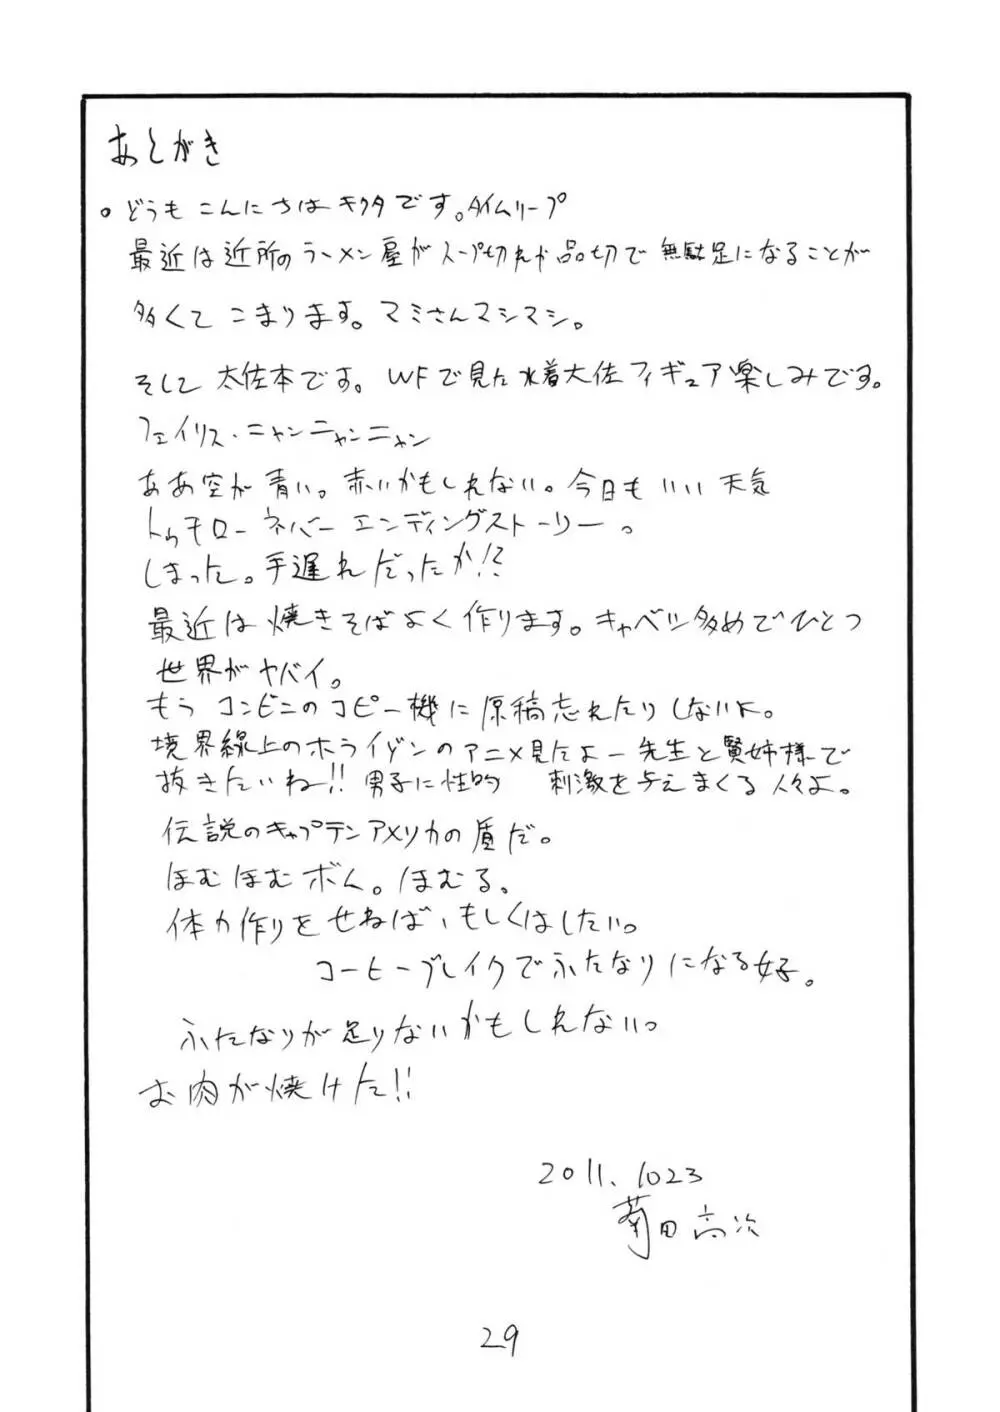 あとがき
。どうも こんにちは キクタです。タイムリープ
最近は近所のラーメン屋がスープ切れか品切で無駄足になることが
多くて こまります。マミさんマシマシ。
そして 大佐本です。WFで見た水着大佐フィギュア楽しみです。
フェイリス・ニャンニャンニャン
ああ空が青い。赤いかもしれない。今日もいい天気
トゥモローネバーエンディングストーリー。
しまった。手遅れだったか!?
最近は焼きそばよく作ります。キャベツ多めでひとつ
世界がヤバイ。
もうコンビニのコピー機に原稿忘れたりしないよ。
境界線上のホライゾンのアニメ見たよー先生と賢姉様で
抜きたいね!!男子に性的 刺激を与えまくる人々よ。
伝説のキャプテンアメリカの盾だ。
ほむほむボム。ほむる。
体力作りをせねば、もしくはしたい。
コーヒーブレイクでふたなりになる女子。
ふたなりが足りないかもしれない。
お肉が焼けた!!
2011.1023
菊田高次
29